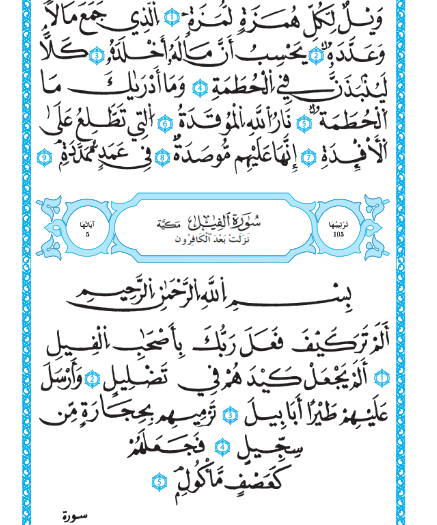 وَيْلٌ لِّكُلِّ هُمَزَةٍ لُّمَزَةٍ ١ الَّذِي جَمَعَ مَالًا
وَعَدَّدَهُ ٢ يَحْسِبُ أَنَّ مَالَهُ أَخْلَدَهُ ٣ كَلَّا
لَيُنْبَذَنَّ فِي الْحُطَمَةِ ٤ وَمَا أَدْرَىٰكَ مَا
الْحُطَمَةُ ٥ نَارُ اللَّهِ الْمُوقَدَةُ ٦ الَّتِي تَطَّلِعُ عَلَى
الْأَفْئِدَةِ ٧ إِنَّهَا عَلَيْهِم مُّؤْصَدَةٌ ٨ فِي عَمَدٍ مُّمَدَّدَةٍ ٩
تَرْتِيبُهَا 105
سُورَةُ الْفِيلِ مَكِّيَّة
نَزَلَتْ بَعْدَ الْكَافِرُونَ
آيَاتُهَا 5
بِسْمِ اللَّهِ الرَّحْمَٰنِ الرَّحِيمِ
أَلَمْ تَرَ كَيْفَ فَعَلَ رَبُّكَ بِأَصْحَٰبِ الْفِيلِ
١ أَلَمْ يَجْعَلْ كَيْدَهُمْ فِي تَضْلِيلٍ ٢ وَأَرْسَلَ
عَلَيْهِمْ طَيْرًا أَبَابِيلَ ٣ تَرْمِيهِم بِحِجَارَةٍ مِّن
سِجِّيلٍ ٤ فَجَعَلَهُمْ
كَعَصْفٍ مَّأْكُولٍ ٥
سورة